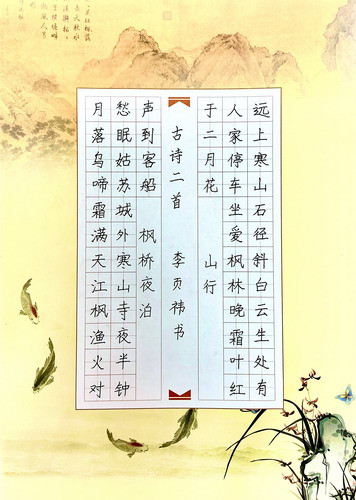 远上寒山石径斜白云生处有
人家停车坐爱枫林晚霜叶红
于二月花 山行
古诗二首 李页祎书
月落乌啼霜满天江枫渔火对
愁眠姑苏城外寒山寺夜半钟
声到客船 枫桥夜泊